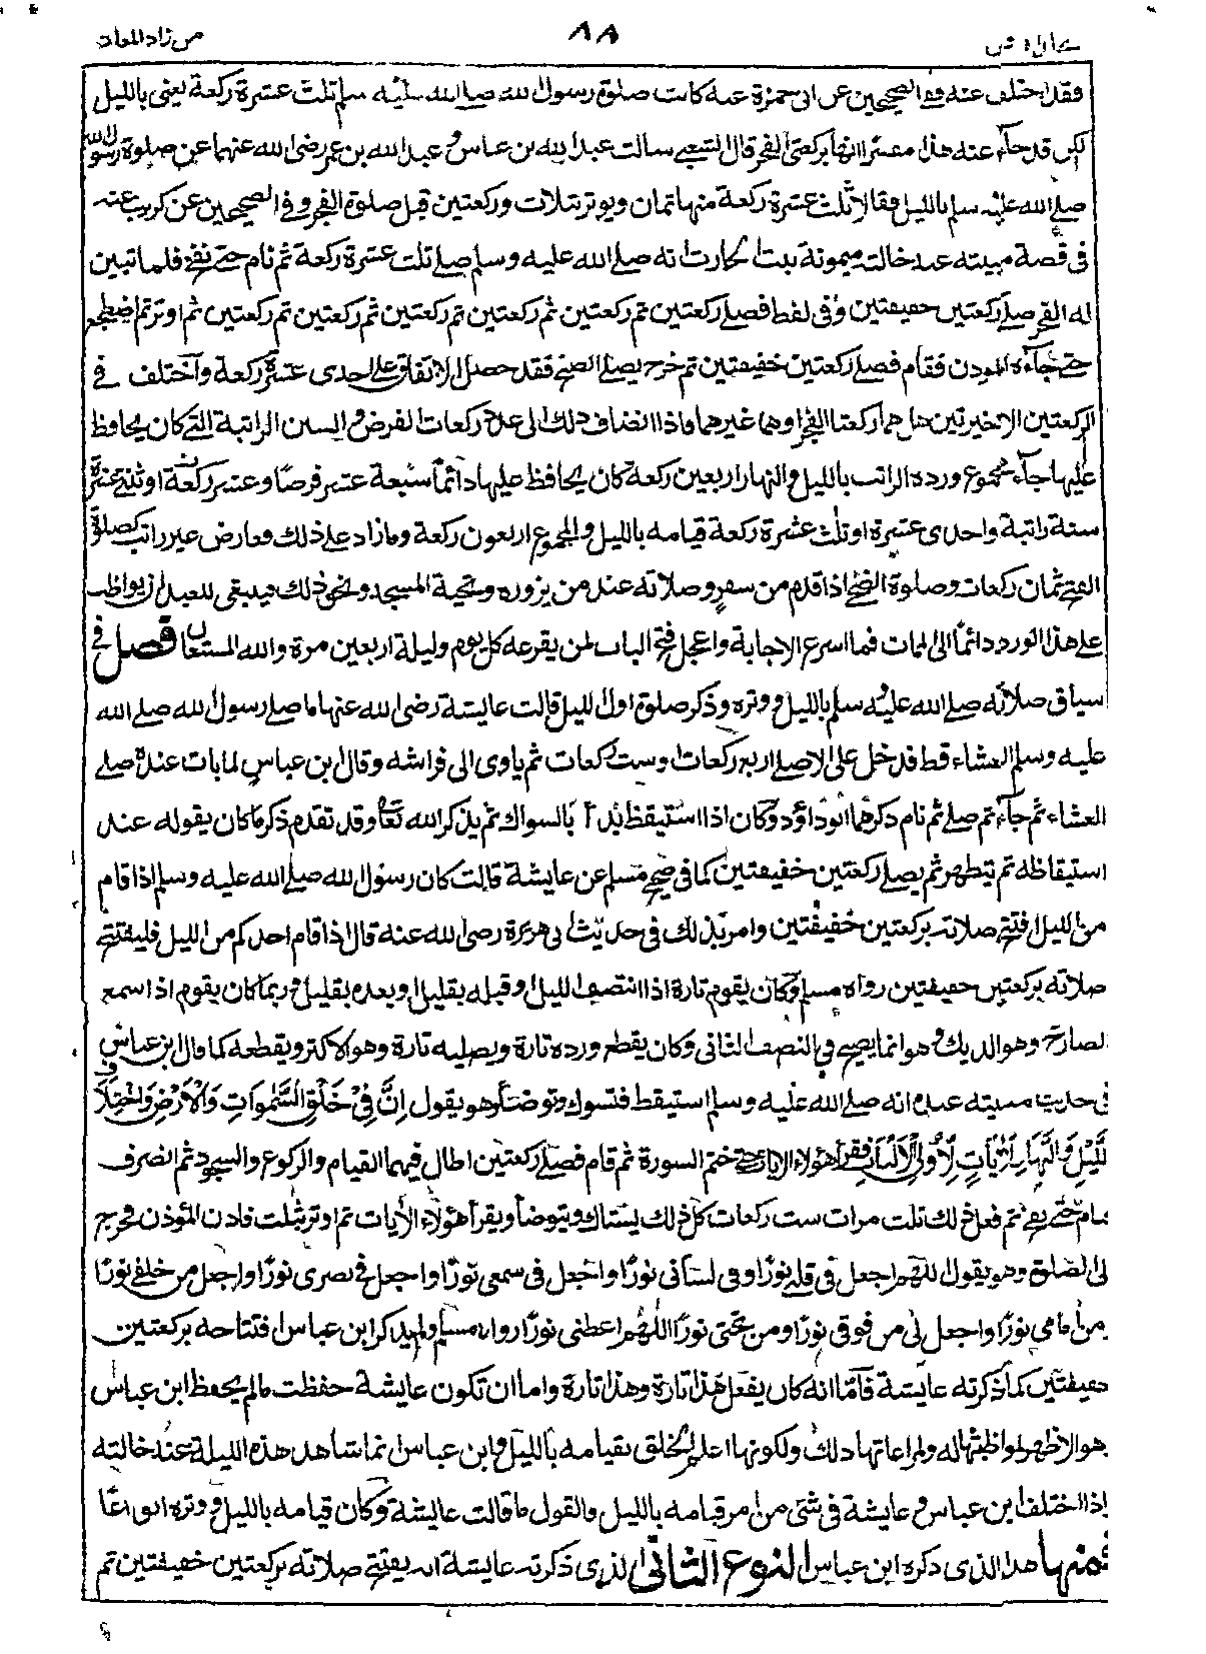 من زاد المعاد
٨٨
فقد اختلف عنه ففى الصحيحين عن ابى حمزة عنه كانت صلوة رسول الله صلے الله عليه وسلم ثلث عشرة ركعة يعنى بالليل
لكن قد جآء عنه هذا مفسرا انها بركعتى الفجر قال الشعبے سالت عبد الله بن عباس و عبد الله بن عمر رضى الله عنهما عن صلوة رسول الله
صلے الله عليه وسلم بالليل فقالا ثلث عشرة ركعة منها ثمان ويوتر بثلاث وركعتين قبل صلوة الفجر وفے الصحيحين عن كريب عنه
فى قصة مبيته عند خالته ميمونة بنت الحارث انه صلے الله عليه وسلم صلے ثلث عشرة ركعة ثم نام حتے نفخ فلما تبين
له الفجر صلے ركعتين خفيفتين وفى لفظ فصلے ركعتين ثم ركعتين ثم ركعتين ثم ركعتين ثم ركعتين ثم ركعتين ثم اوتر ثم اضطجع
حتے جآءه المؤذن فقام فصلے ركعتين خفيفتين ثم خرج يصلے الصبح فقد حصل الاتفاق على احدى عشرة ركعة وآختلف فے
الركعتين الاخيرتين هل هما ركعتا الفجر اوهما غيرهما فاذا انضاف ذلك الى عدد ركعات الفرض و السنن الراتبة التے كان يحافظ
عليها جآء مجموع ورده الراتب بالليل والنهار اربعين ركعة كان يحافظ عليها دائماً سبعة عشر فرضًا وعشر ركعة او ثنتے عشرة
سنة راتبة واحدى عشرة او ثلث عشرة ركعة قيامه بالليل والمجموع اربعون ركعة وما زاد علے ذلك فعارض غير راتب كصلوة
الفتح ثمان ركعات وصلوة الضحے اذا قدم من سفرٍ وصلاته عند من يزوره وتحية المسجد ونحو ذلك فينبغى للعبد ان يواظب
علے هذا الورد دائماً الى الممات فما اسرع الاجابة واعجل فتح الباب لمن يقرعه كل يوم وليلة اربعين مرة والله المستعان فصل فے
سياق صلاته صلے الله عليه وسلم بالليل و وتره وذكر صلوة اول الليل قالت عايشة رضى الله عنها ما صلے رسول الله صلے الله
عليه وسلم العشاء قط فدخل علىّ الا صلے اربع ركعات او ست ركعات ثم ياوى الى فراشه وقال ابن عباسٍ لما بات عنده صلے
العشاء ثم جآء ثم صلے ثم نام ذكرهما ابوداؤد وكان اذا استيقظ بدأ بالسواك ثم يذكر الله تعالى وقد تقدم ذكر ما كان يقوله عند
استيقاظه ثم يتطهر ثم يصلے ركعتين خفيفتين كما فى صحيح مسلم عن عايشة قالت كان رسول الله صلے الله عليه وسلم اذا قام
من الليل افتتح صلاته بركعتين خفيفتين وامر بذلك فى حديث ابى هريرة رضى الله عنه قال اذا قام احدكم من الليل فليفتتح
صلاته بركعتين خفيفتين رواه مسلم وكان يقوم تارة اذا انتصف الليل او قبله بقليل او بعده بقليل و ربما كان يقوم اذا سمع
الصارخ وهو الديك و هو انما يصيح فى النصف الثانى وكان يقطع ورده تارة ويصليه تارة وهو الاكثر ويقطعه كما قال ابن عباس
فى حديث مبيته عنده انه صلے الله عليه وسلم استيقظ فتسوك وتوضأ وهو يقول اِنَّ فِىْ خَلْقِ السَّمٰوَاتِ وَالْاَرْضِ وَاخْتِلَافِ
اللَّيْلِ وَالنَّهَارِ لَاٰيَاتٍ لِاُولِى الْاَلْبَابِ فقرأ هؤلاء الايات حتے ختم السورة ثم قام فصلے ركعتين اطال فيهما القيام والركوع والسجود ثم انصرف
فنام حتے نفخ ثم فعل ذلك ثلث مرات ست ركعات كل ذلك يستاك ويتوضأ ويقرأ هؤلاء الأيات ثم اوتر بثلث فاذن المؤذن فخرج
الى الصلوة وهو يقول اللهم اجعل فى قلبے نورًا وفى لسانى نورًا واجعل فى سمعى نورًا واجعل فى بصرى نورًا واجعل من خلفے نورًا
ومن امامى نورًا واجعل لى من فوقى نورًا ومن تحتى نورًا اللهم اعطنى نورًا رواه مسلم ولم يذكر ابن عباس افتتاحه بركعتين
خفيفتين كما ذكرته عايشة فآمّا انه كان يفعل هذا تارة وهذا تارة واما ان تكون عايشة حفظت مالم يحفظ ابن عباس
وهو الاظهر لمواظبتها له ولمراعاتها ذلك ولكونها اعلم الخلق بقيامه بالليل و ابن عباس انما شاهد هذه الليلة عند خالته
واذا اختلف ابن عباس و عايشة فى شئ من امر قيامه بالليل والقول ما قالت عايشة وكان قيامه بالليل و وتره انواعًا
فمنها هذا الذى ذكره ابن عباس النوع الثانى الذى ذكرته عايشة انه يفتتح صلاته بركعتين خفيفتين ثم